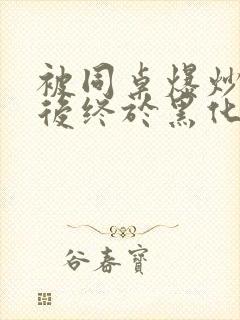 被同桌爆炒
後终於黑化
谷春寶